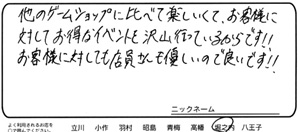 他のゲームショップに比べて楽しいくて、お客様に
対してお得なイベントを沢山行っているからです!!
お客様に対しても店員さんも優しいので良いです!!
ニックネーム
よく利用されるお店を
○で囲んでください。
立川 小作 羽村 昭島 青梅 高幡 堀之内 八王子